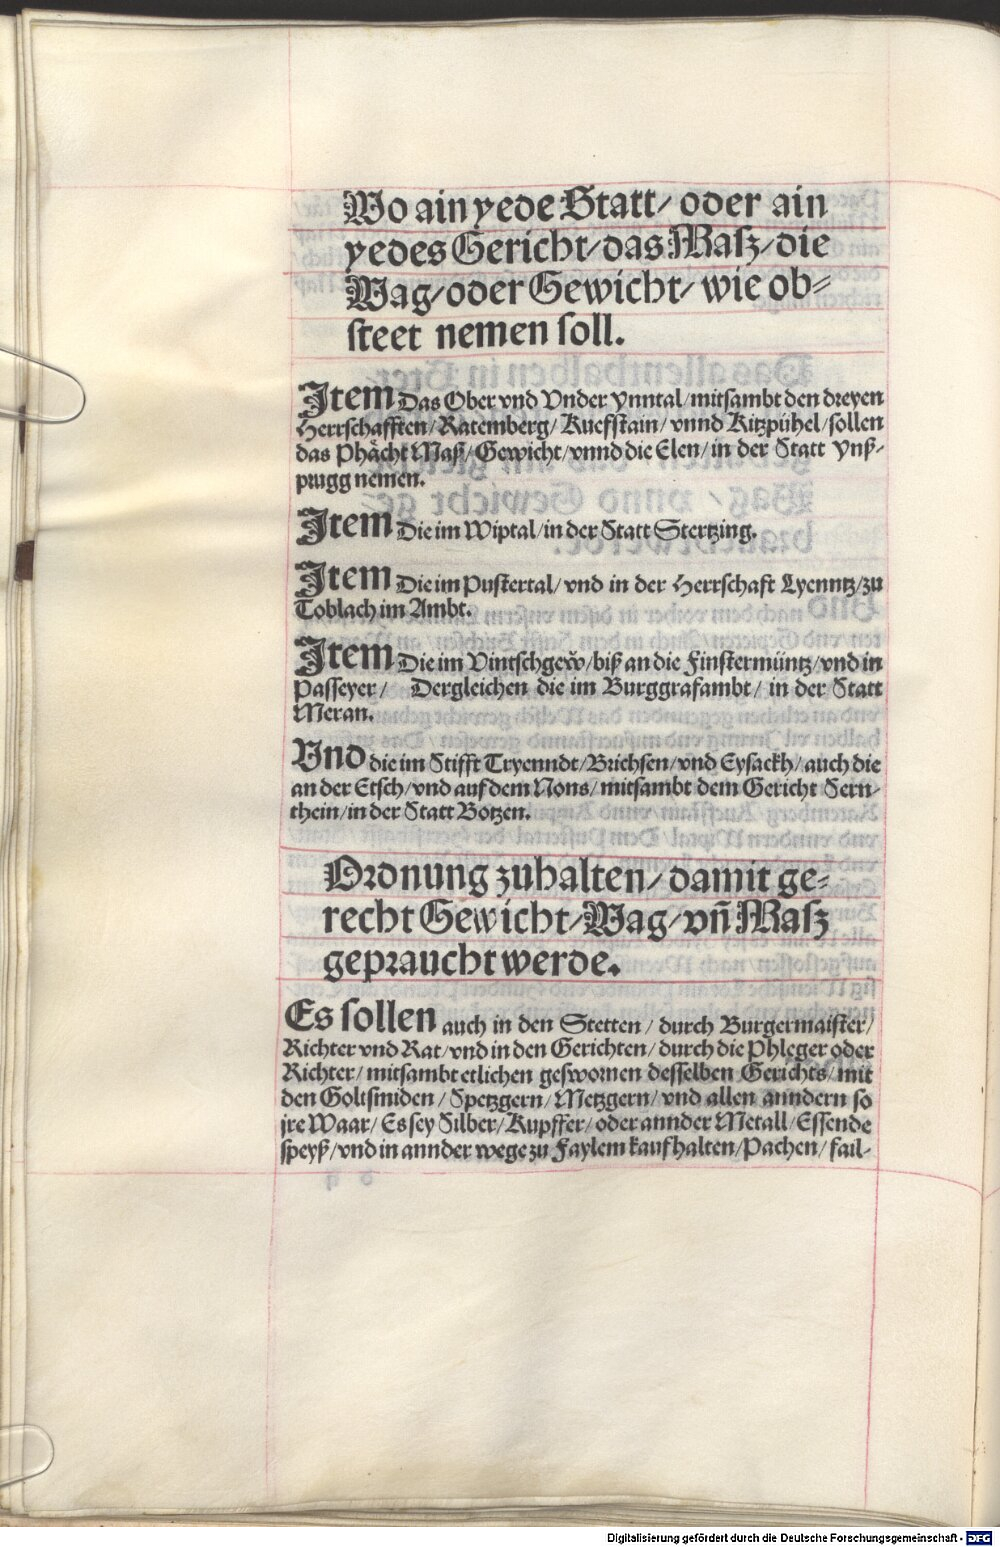 Wo ain yede Statt/ oder ain
yedes Gericht/ das Maſz/ die
Wag/ oder Gewicht/ wie ob⸗
ſteet nemen ſoll.
Item Das Ober vnd Vnder Ynntal/ mitſambt den dreyen
Herrſchafften/ Ratemberg/ Kuefſtain/ vnnd Kitzpühel/ ſollen
das Phächt Maß/ Gewicht/ vnnd die Elen/ in der Statt Ynß⸗
prugg nemen.
Item Die im Wiptal/ in der Statt Stertzing.
Item Die im Puſtertal/ vnd in der Herrſchaft Lyenntz/ zu
Toblach im Ambt.
Item Die im Vintſchgew̆/ biß an die Finſtermüntz/ vnd in
Paſſeyer/ Dergleichen die im Burggrafambt/ in der Statt
Meran.
Vnd die im Stifft Tryenndt/ Brichſen/ vnd Eyſackh/ auch die
an der Etſch/ vnd auf dem Nons/ mitſambt dem Gericht Sern⸗
thein/ in der Statt Botzen.
Ordnung zuhalten/ damit ge⸗
recht Gewicht/ Wag/ vñ Maſz
gepraucht werde.
Es ſollen auch in den Stetten/ durch Burgermaiſter/
Richter vnd Rat/ vnd in den Gerichten/ durch die Phleger oder
Richter/ mitſambt etlichen geswornen deſſelben Gerichts/ mit
den Goltſmiden/ Spetzgern/ Metzgern/ vnd allen anndern ſo
jre Waar/ Es ſey Silber/ Kupffer/ oder annder Metall/ Eſſende
ſpeyß/ vnd in annder wege zu Faylem kauf halten/ Pachen/ fail⸗
Digitalisierung gefördert durch die Deutsche Forschungsgemeinschaft - DFG